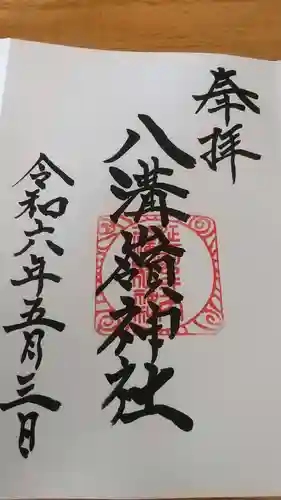 奉拝
八溝嶺神社
令和六年五月三日